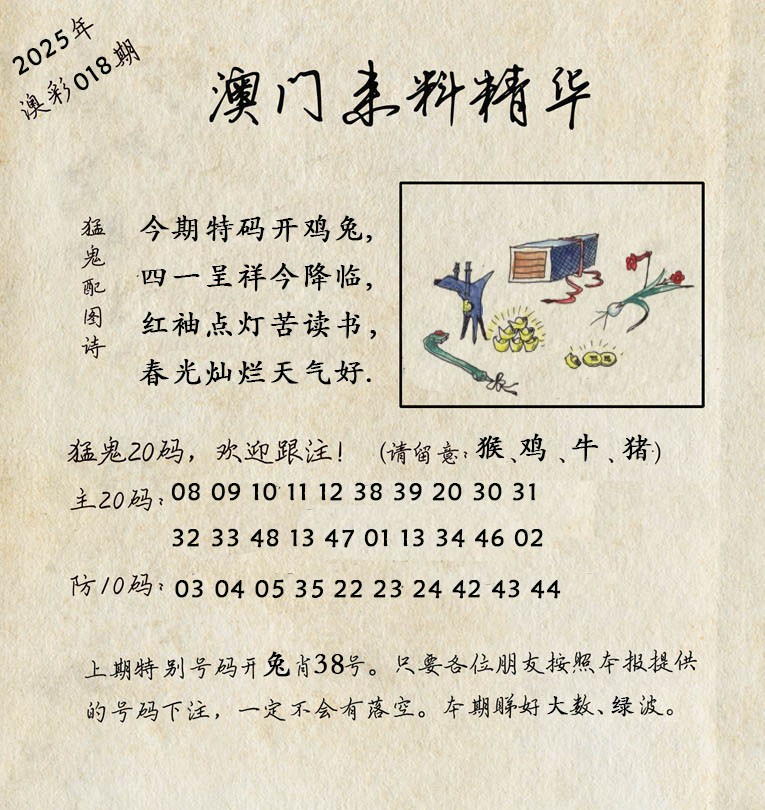 2025年
澳彩018期
澳门来料精华
猛鬼配图诗
今期特码开鸡兔,
四一呈祥今降临,
红袖点灯苦读书,
春光灿烂天气好.
猛鬼20码，欢迎跟注！(请留意:猴、鸡、牛、猪)
主20码: 08 09 10 11 12 38 39 20 30 31
32 33 48 13 47 01 13 34 46 02
防10码: 03 04 05 35 22 23 24 42 43 44
上期特别号码开兔肖38号。只要各位朋友按照本报提供
的号码下注，一定不会有落空。本期睇好大数、绿波。